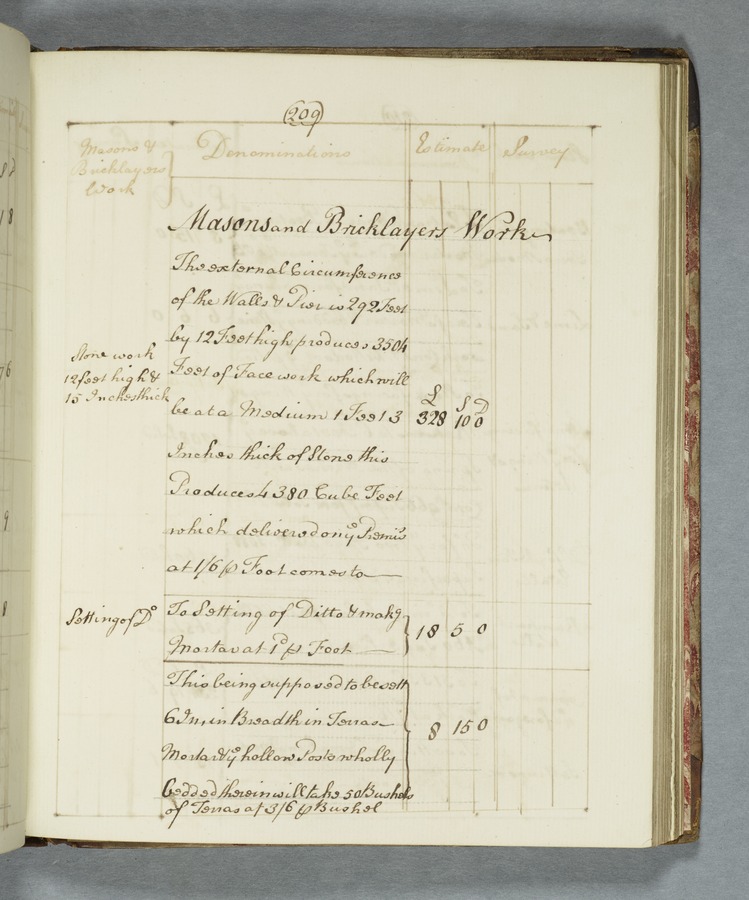 209
Masons &
Bricklayers
Work
Denominations
Estimate
Survey
Masons and Bricklayers Work
The external Circumference
of the Walls & Pier is 292 Feet
by 12 Feet high produces 3504
Stone work
12 feet high &
15 Inches thick
Feet of Face work which will
be at a Medium 1 Feet 3
£ S D
328 10 0
Inches thick of Stone this
Produces 4380 Cube Feet
which deliver'd on ye Premis
at 1/6 p Foot comes to
Setting of Do
To Setting of Ditto & makg
Mortar at 1d p Foot
18 5 0
This being supposed to be sett
6 In: in Breadth in Terras
Mortar & ye hollow Posts wholly
8 15 0
bedded therein will take 50 Bushels
of Terras at 3/6 p Bushel